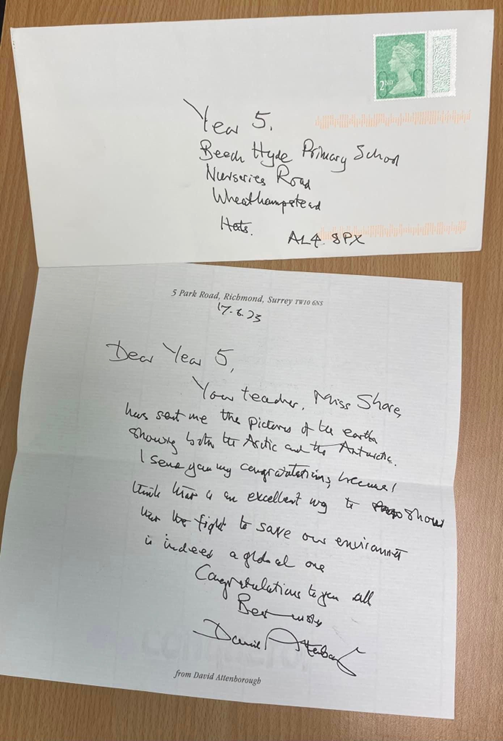 2ND
Year 5,
Beech Hyde Primary School
Nurseries Road
Wheathampstead
Herts.
AL4 8PX
5 Park Road, Richmond, Surrey TW10 6NS
17.6.23
Dear Year 5,
Your teacher, Miss Shore,
has sent me the pictures of the earth
showing both the Arctic and the Antarctic.
I send you my congratulations, because I
think that is an excellent way to show
that the fight to save our environment
is indeed a global one
Congratulations to you all
Best wishes
David Attenborough
from David Attenborough